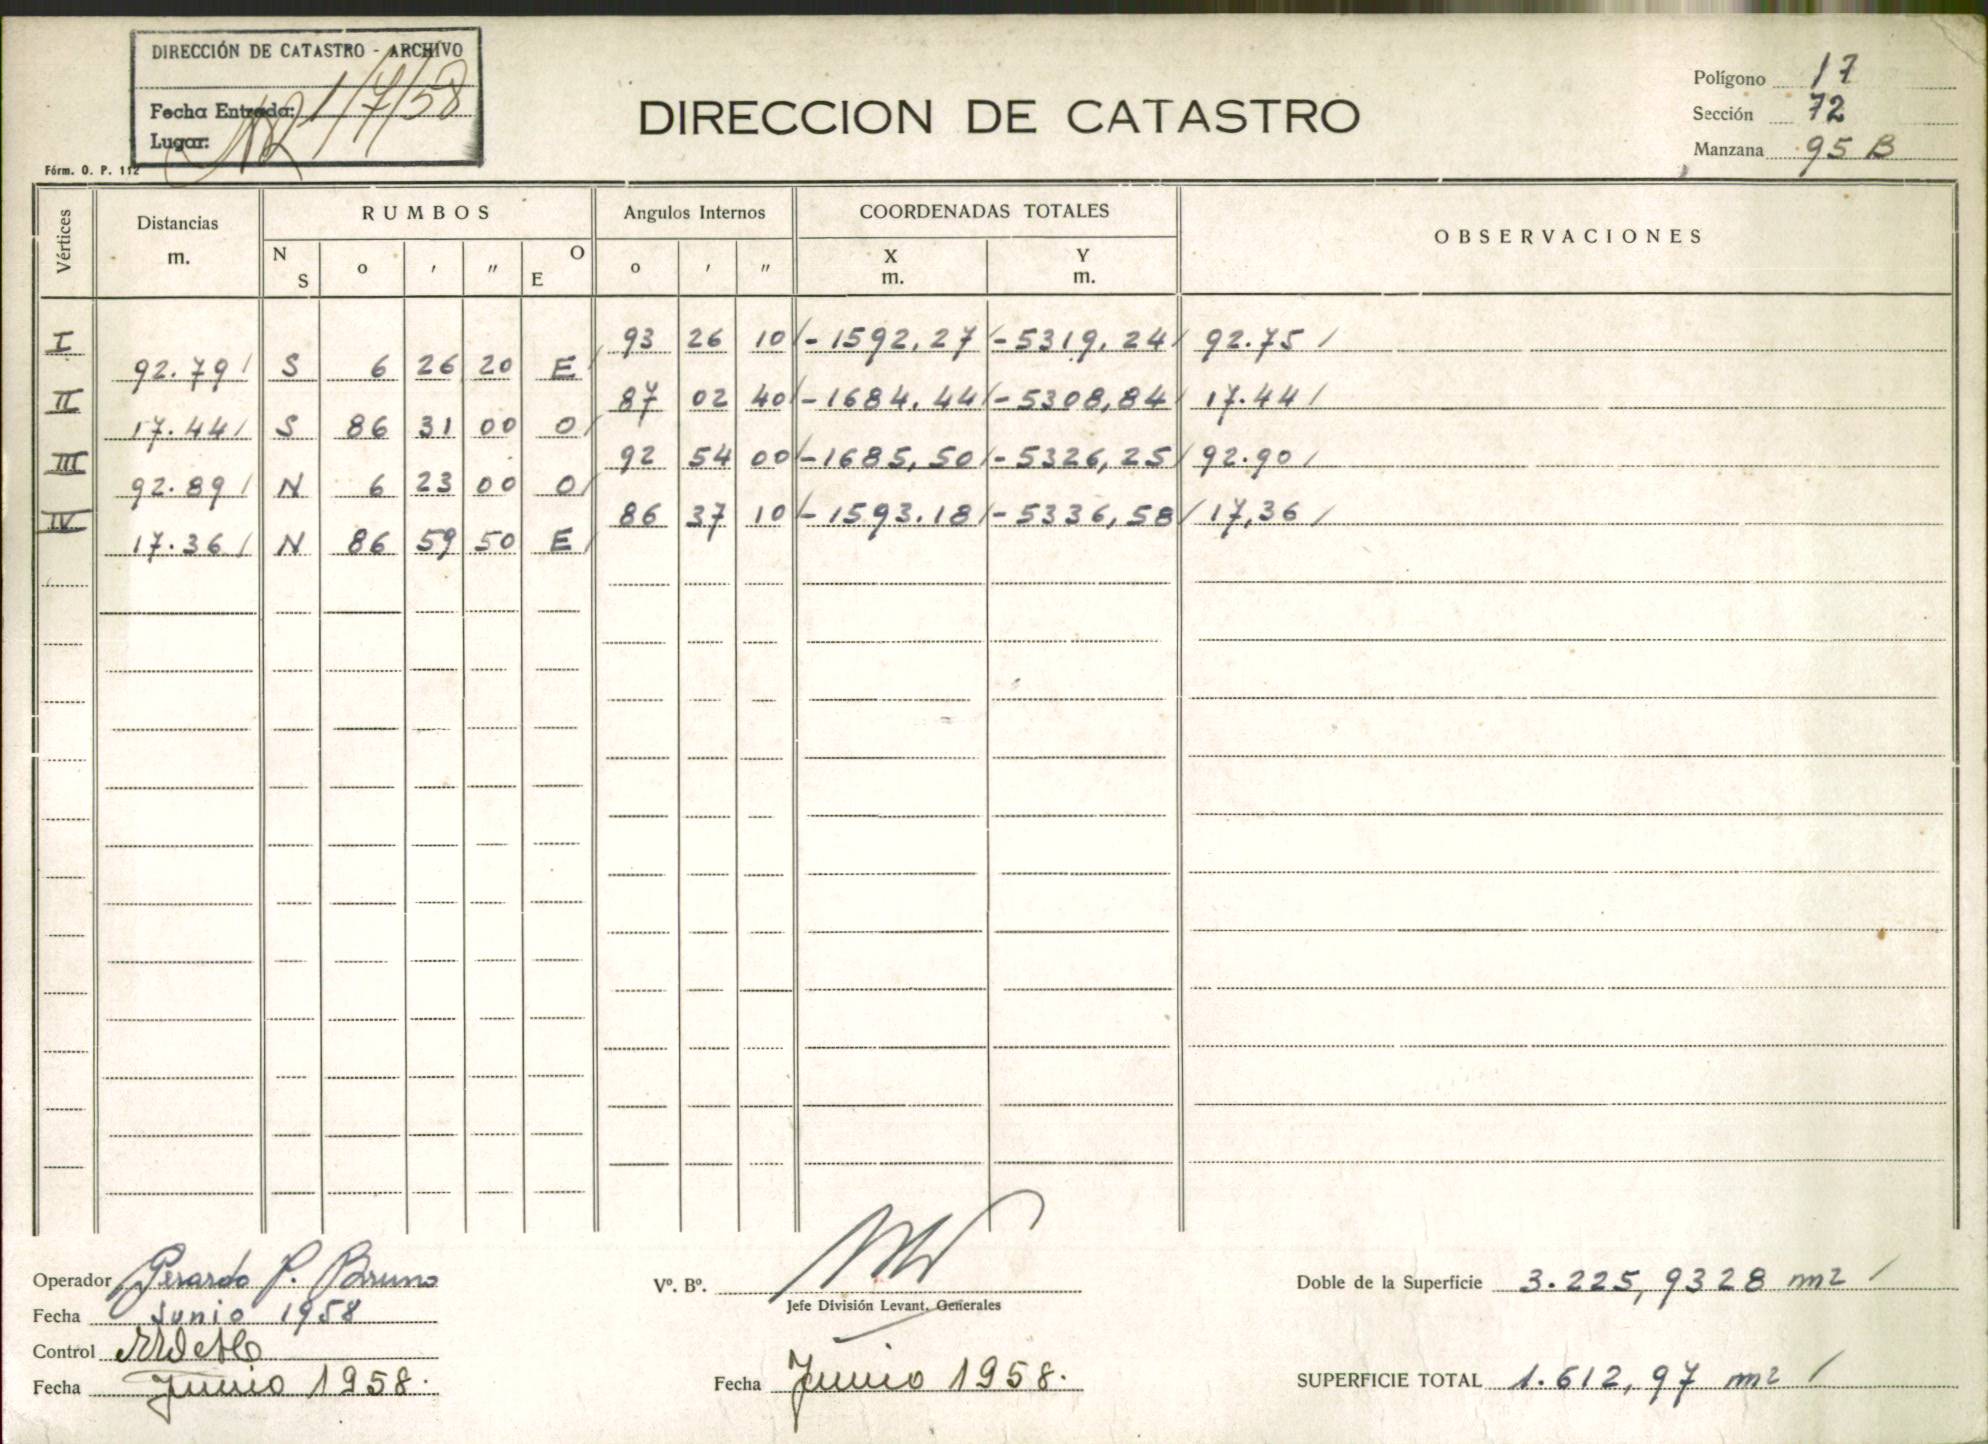 DIRECCIÓN DE CATASTRO - ARCHIVO
Fecha Entrada: 1/7/58
Lugar:
Fórm. O. P. 112
DIRECCION DE CATASTRO
Polígono 17
Sección 72
Manzana 95 B
Vértices Distancias m. RUMBOS Angulos Internos COORDENADAS TOTALES OBSERVACIONES
N S o ' " O E o ' " X m. Y m.
I 93 26 10 -1592,27 -5319,24 92.75
92.79 S 6 26 20 E
II 87 02 40 -1684,44 -5308,84 17.44
17.44 S 86 31 00 O
III 92 54 00 -1685,50 -5326,25 92.90
92.89 N 6 23 00 O
IV 86 37 10 -1593.18 -5336,58 17,36
17.36 N 86 59 50 E
Operador Gerardo P. Bruno
Fecha Junio 1958
Control
Fecha Junio 1958.
Vº. Bº.
Jefe División Levant. Generales
Fecha Junio 1958.
Doble de la Superficie 3.225,9328 m2
SUPERFICIE TOTAL 1.612,97 m2